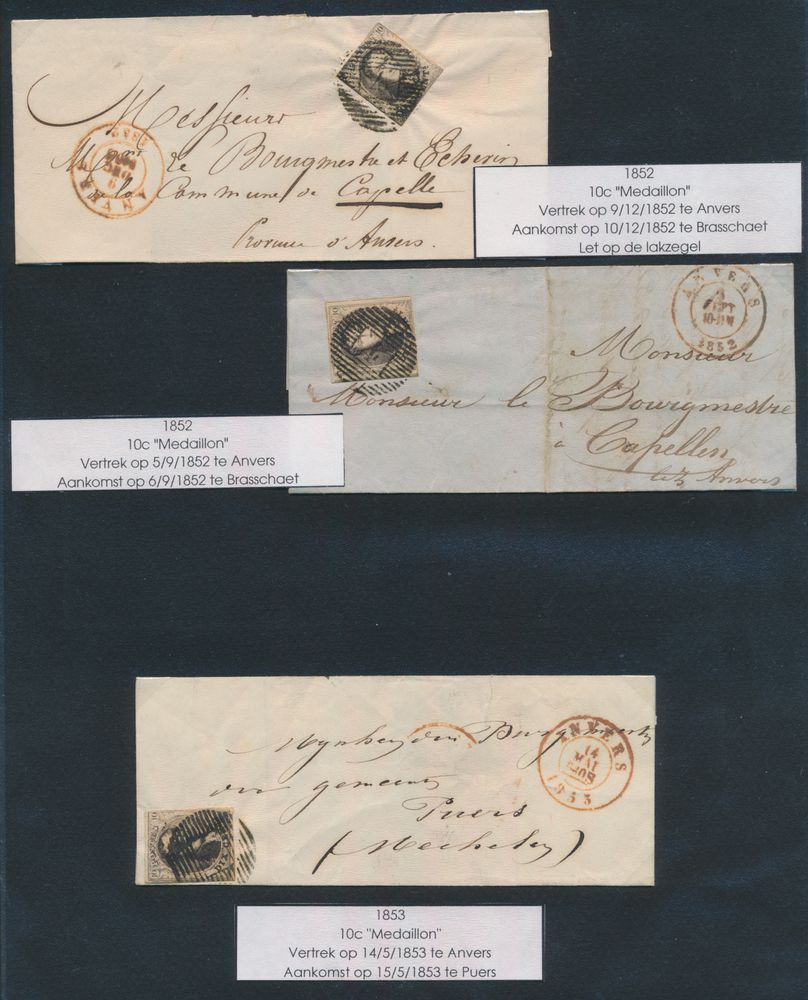 Messieurs
le Bourgmestre et Echevin
de la Commune de Capelle
Province d'Anvers.
ANVERS
9
DEC
1852
1852
10c "Medaillon"
Vertrek op 9/12/1852 te Anvers
Aankomst op 10/12/1852 te Brasschaet
Let op de lakzegel
ANVERS
SEPT
1852
Monsieur
Monsieur le Bourgmestre
à Capellen
lez Anvers
1852
10c "Medaillon"
Vertrek op 5/9/1852 te Anvers
Aankomst op 6/9/1852 te Brasschaet
ANVERS
14
MAI
1853
Mynheer den Burgmeester
der gemeente
Puers
(Mechelen)
1853
10c "Medaillon"
Vertrek op 14/5/1853 te Anvers
Aankomst op 15/5/1853 te Puers